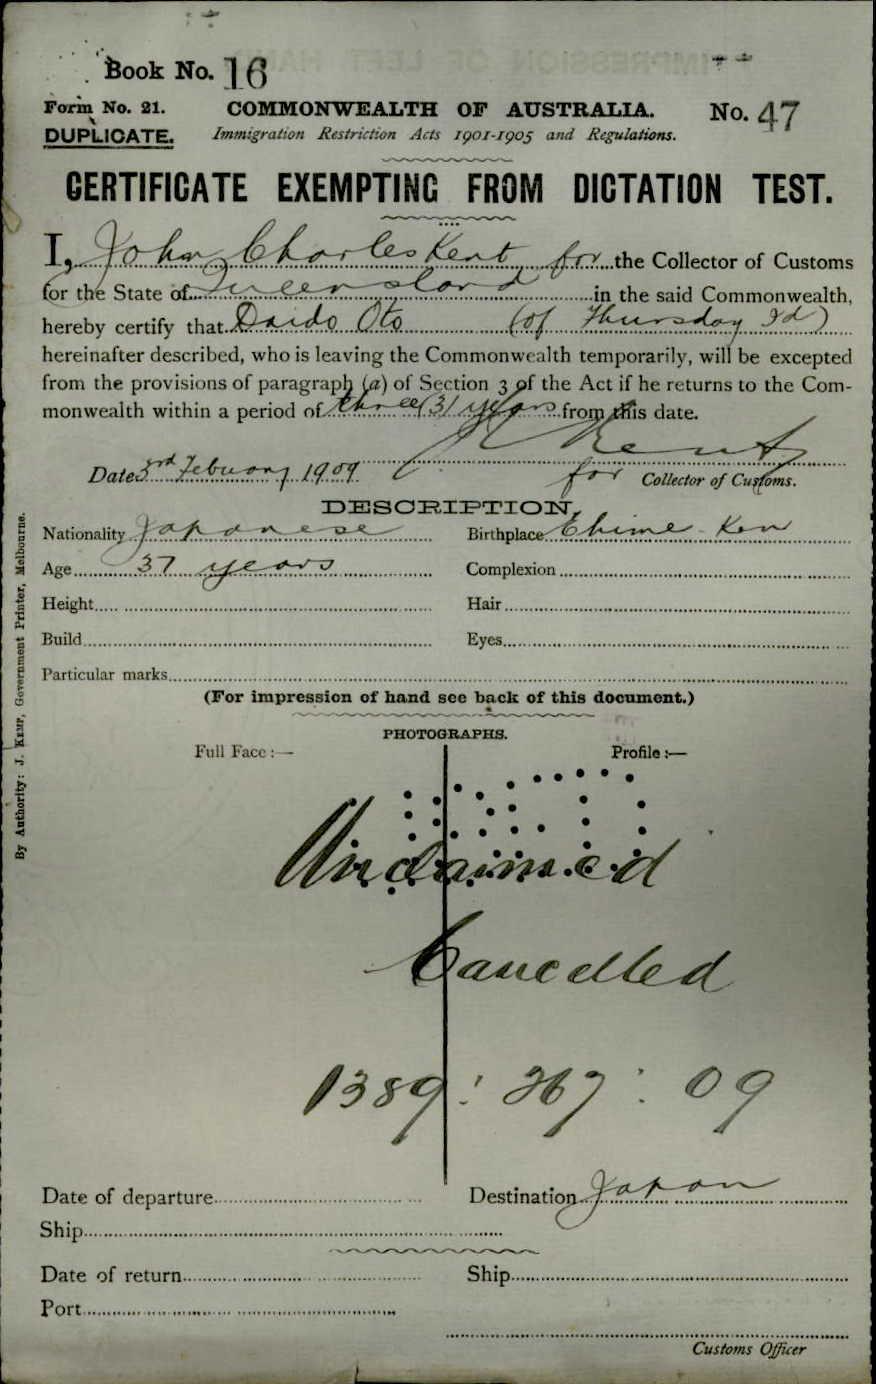 Book No. 16
Form No. 21.
COMMONWEALTH OF AUSTRALIA.
No. 47
DUPLICATE.
Immigration Restriction Acts 1901-1905 and Regulations.
CERTIFICATE EXEMPTING FROM DICTATION TEST.
I, John Charles Kent for the Collector of Customs
for the State of Queensland in the said Commonwealth,
hereby certify that Daido Oto (of Thursday Id)
hereinafter described, who is leaving the Commonwealth temporarily, will be excepted
from the provisions of paragraph (a) of Section 3 of the Act if he returns to the Com-
monwealth within a period of three (3) years from this date.
J C Kent
Date 3rd February 1909
for Collector of Customs.
DESCRIPTION.
Nationality Japanese Birthplace Ehime Ken
Age 37 years Complexion
Height Hair
Build Eyes
Particular marks
(For impression of hand see back of this document.)
PHOTOGRAPHS.
Full Face :— Profile :—
Unclaimed
Cancelled
1389 : 267 : 09
Date of departure Destination Japan
Ship
Date of return Ship
Port
Customs Officer
By Authority: J. KEMP, Government Printer, Melbourne.